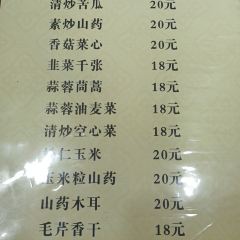 清炒苦瓜 20元
素炒山药 20元
香菇菜心 20元
韭菜千张 18元
蒜蓉茼蒿 18元
蒜蓉油麦菜 18元
清炒空心菜 18元
仁玉米 20元
玉米粒山药 20元
山药木耳 20元
毛芹香干 18元